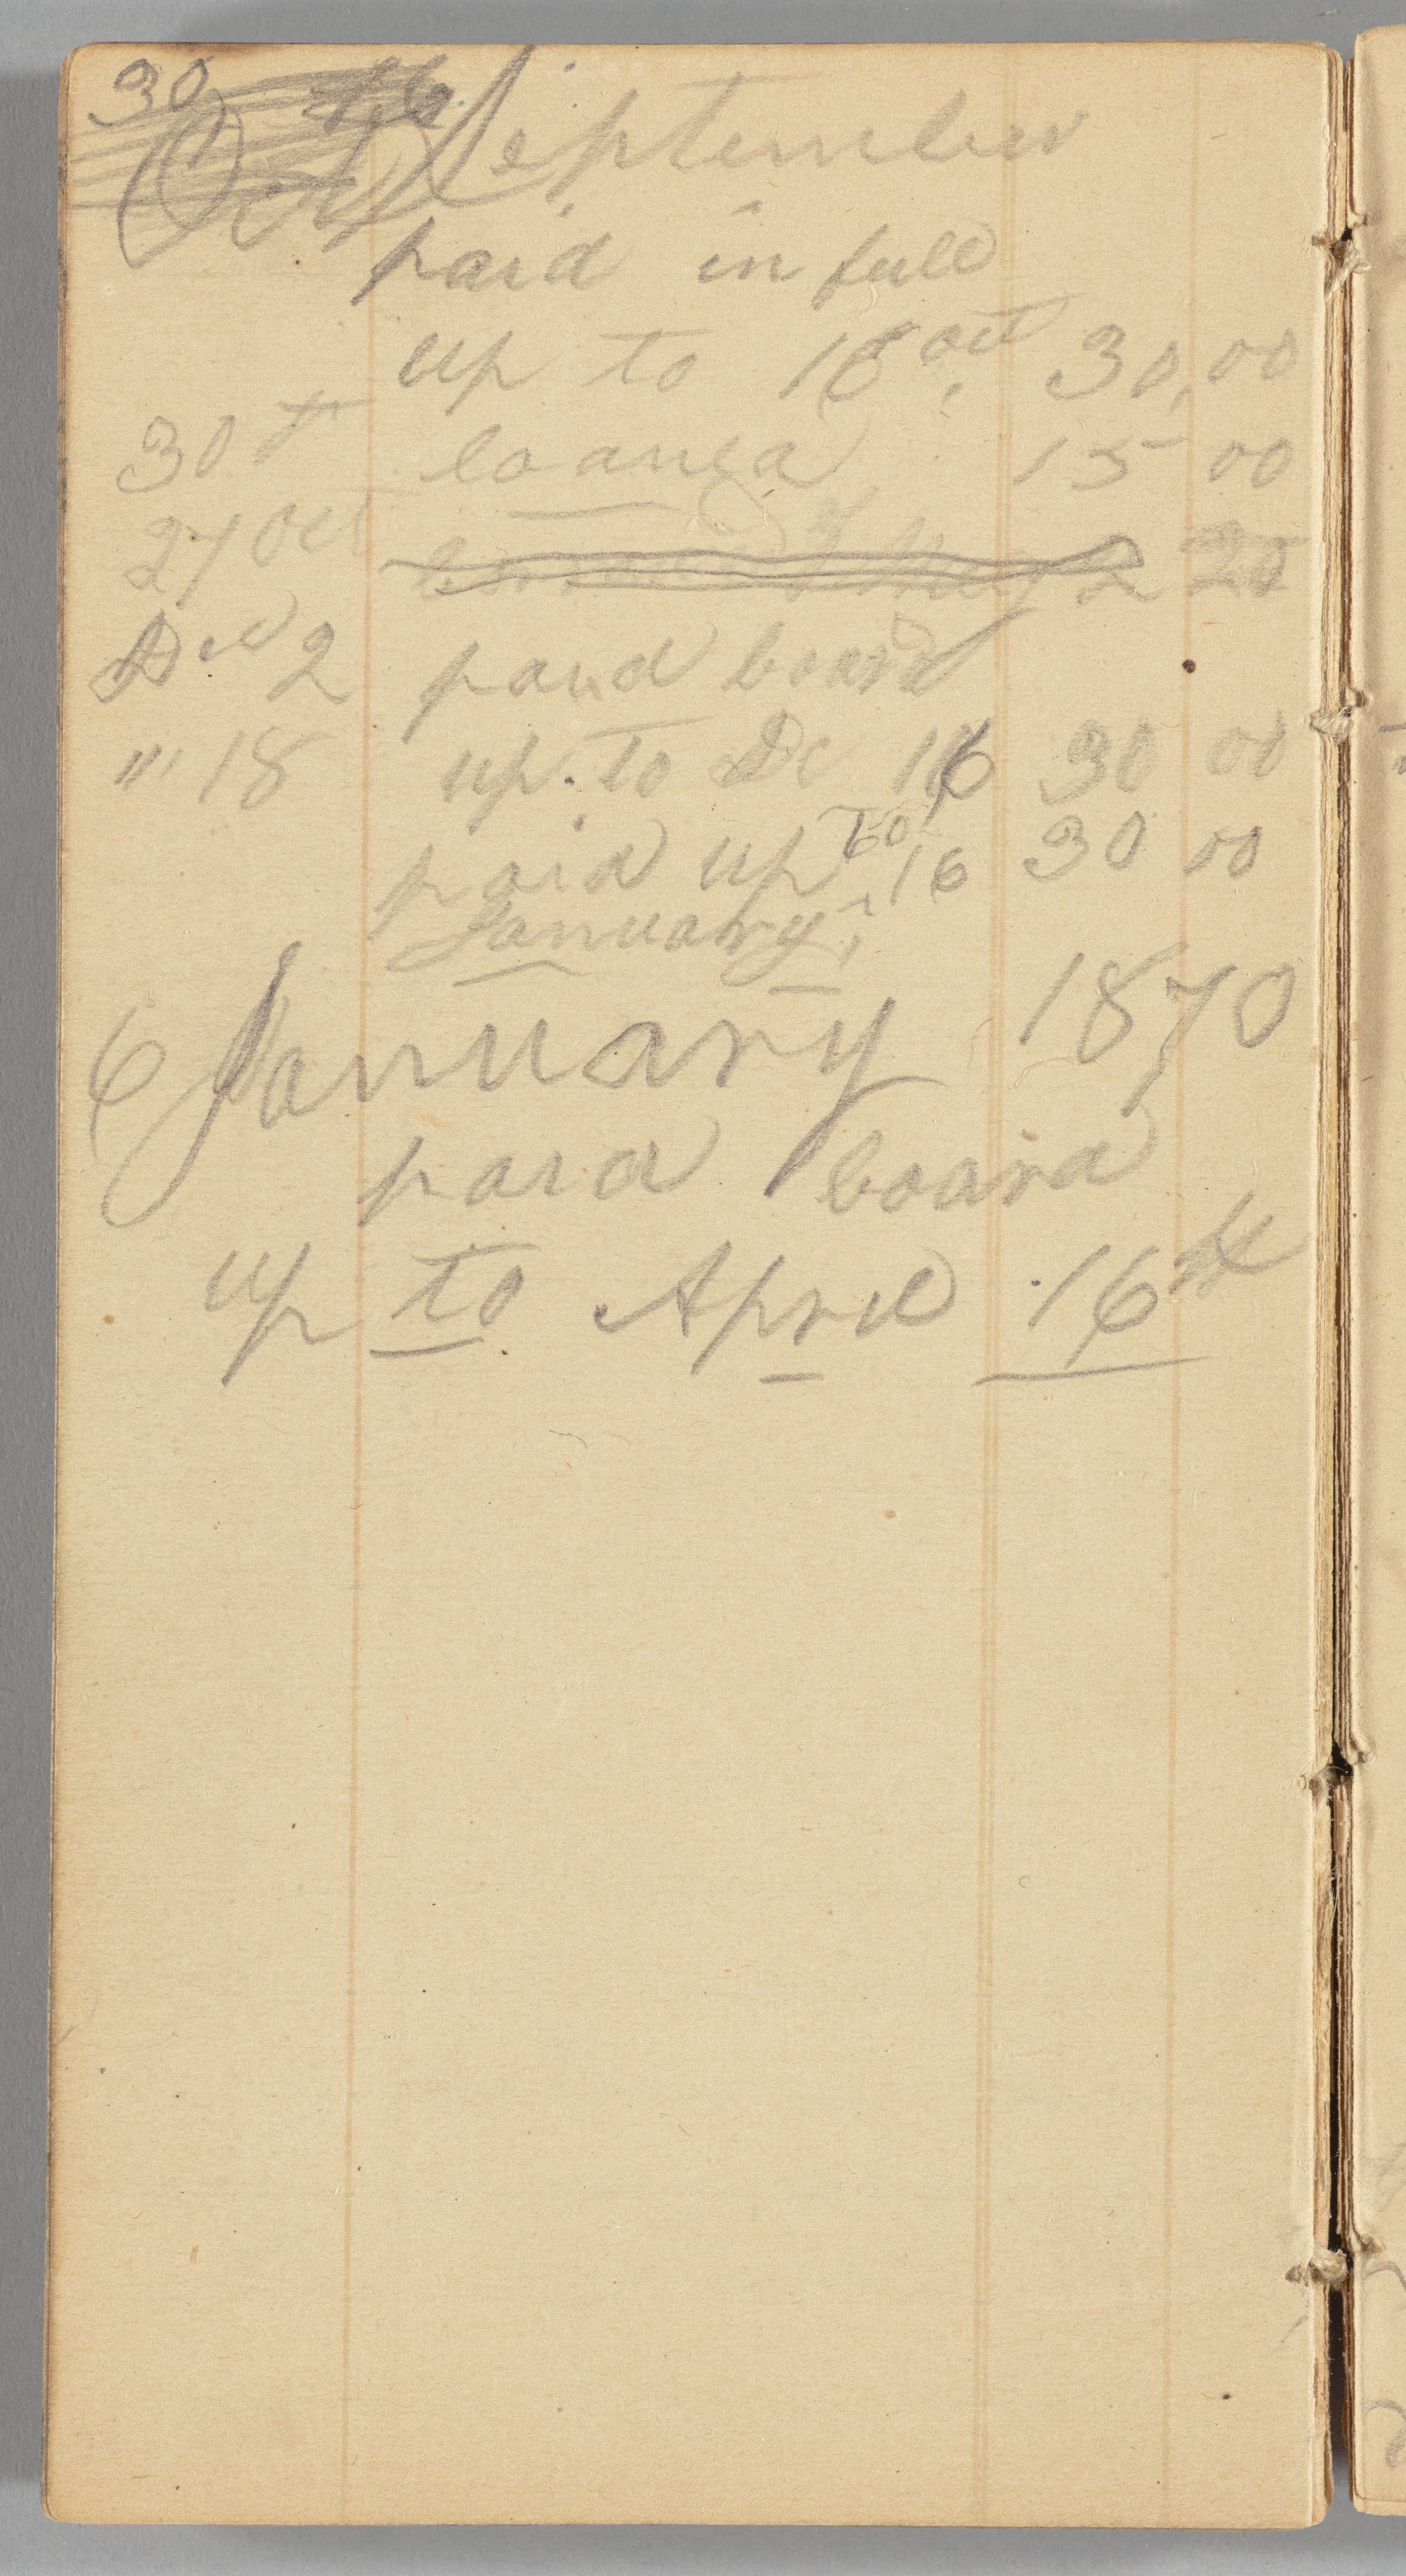 30 September
paid in full
up to 16 Oct, 30,00
30th loaned 15 00
27 Oct 2 20
Dec 2 paid board
"" 18 up to Dc 16 30 00
paid up to 16 30 00
January,
6 January 1870
paid board
up to April 16th